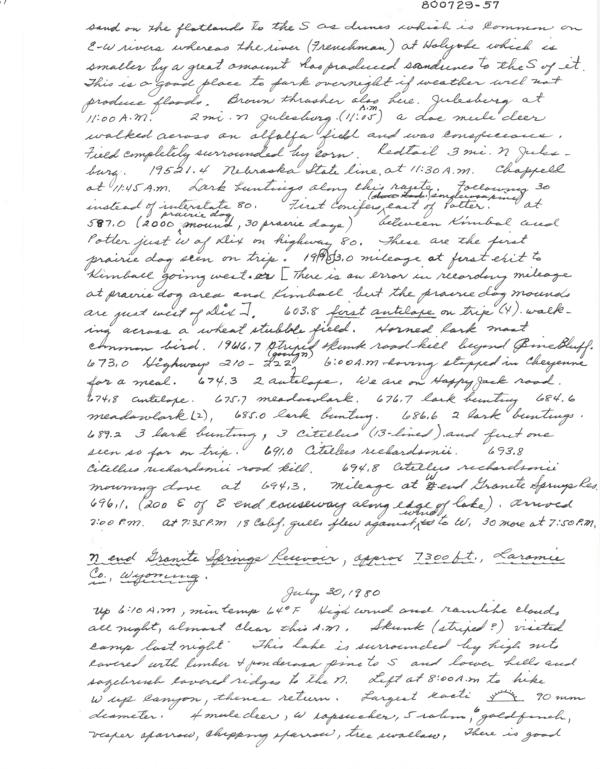 800729-57
sand on the flatlands to the S as dunes which is common on
E-W rivers whereas the river (Frenchman) at Holyoke which is
smaller by a great amount has produced sandunes to the S of it.
This is a good place to park overnight if weather will not
produce floods. Brown thrasher also here. Julesburg at
11:00 A.M. 2 mi. N Julesburg (11:05 A.M.) a doe mule deer
walked across an alfalfa field and was conspicuous.
Field completely surrounded by corn. Redtail 3 mi. N Jules-
burg. 19521.4 Nebraska State line, at 11:30 A.M. Chappell
at 11:45 A.M. Lark buntings along this route. Following 30
instead of interstate 80. First conifers east of Potter. at
587.0 (2000 prairie dog mound, 30 prairie dogs) between Kimbal and
Potter just W of Dix on highway 80. These are the first
prairie dog seen on trip. 3.0 mileage at first exit to
Kimball going west. [There is an error in recording mileage
at prairie dog area and Kimball but the prairie dog mounds
are just west of Dix]. 603.8 first antelope on trip (4) walk-
ing across a wheat stubble field. Horned lark most
common bird. 19616.7 striped skunk road-kill beyond Pine Bluff.
673.0 Highway 210 - 222? 6:00 A.M. having stopped in Cheyenne
for a meal. 674.3 2 antelope. We are on Happy Jack road.
674.8 antelope. 675.7 meadowlark. 676.7 lark bunting 684.6
meadowlark (2), 685.0 lark bunting. 686.6 2 lark buntings.
689.2 3 lark bunting, 3 Citellus (13-lined) and first one
seen so far on trip. 691.0 Citellus richardsonii. 693.8
Citellus richardsonii road kill. 694.8 Citellus richardsonii
mourning dove at 694.3. Mileage at W end Granite Springs Res.
696.1. (200 E of E end causeway along edge of lake). arrived
7:00 P.M. at 7:35 P.M. 18 Calif. gulls flew against wind to W, 30 more at 7:50 P.M.
N end Granite Springs Resevoir, approx 7300 ft., Laramie
Co., Wyoming.
July 30, 1980
Up 6:10 A.M., min temp 64° F High wind and rainlike clouds
all night, almost clear this A.M. Skunk (striped?) visited
camp last night. This lake is surrounded by high mts
covered with limber & ponderosa pine to S and lower hills and
sagebrush covered ridges to the N. Left at 8:00 A.M. to hike
W up canyon, thence return. Largest cacti 90 mm
diameter. 4 mule deer, W sapsucker, 5 robin, 6 goldfinch,
vesper sparrow, chipping sparrow, tree swallow. There is good